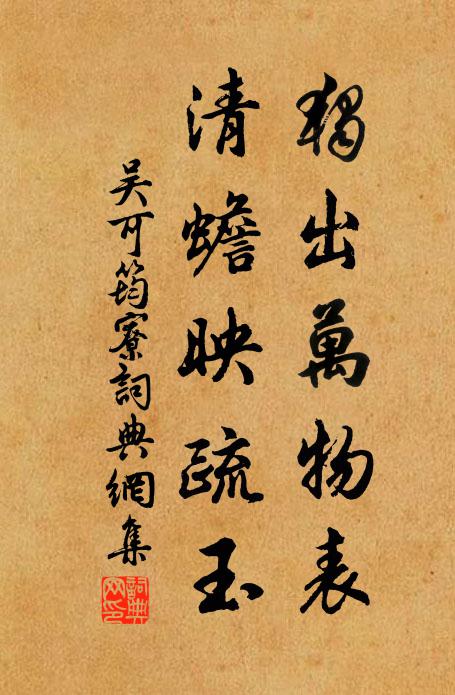 獨出萬物表
清蟾映疏玉
吳可筠寮詞典網集
詞典網印